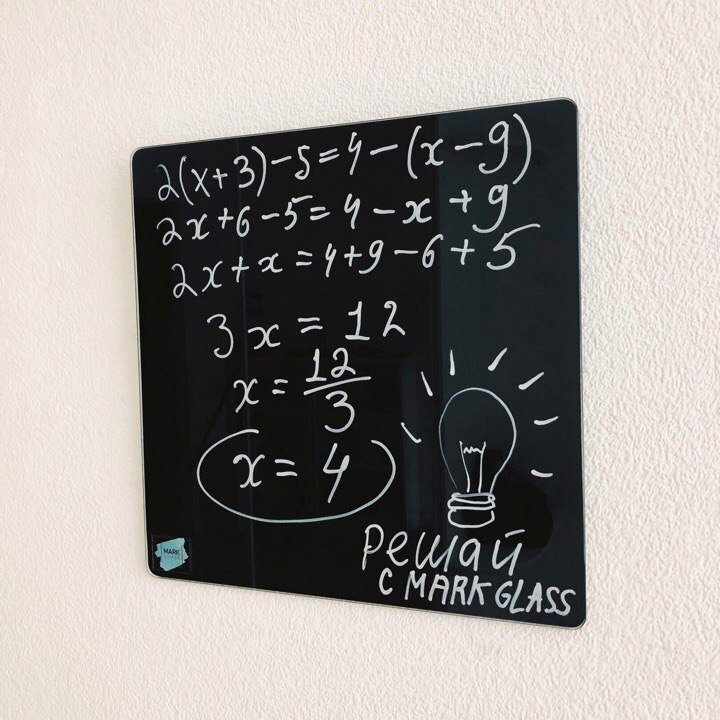 2(x+3)-5=4-(x-9)
2x+6-5=4-x+9
2x+x=4+9-6+5
3x=12
x=12/3
x=4
Решай
с MARK GLASS
MARK
GLASS